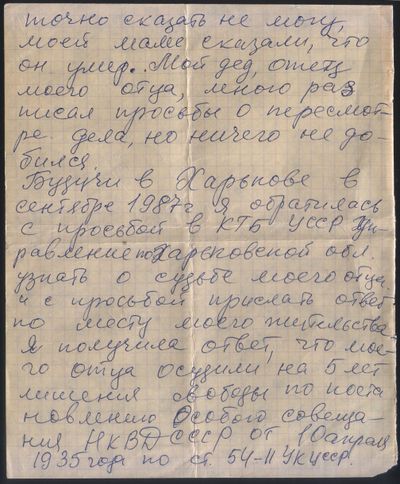 точно сказать не могу,
моей маме сказали, что
он умер. Мой дед, отец
моего отца, много раз
писал просьбы о пересмот-
ре дела, но ничего не до-
бился.
Будучи в Харькове в
сентябре 1987г я обратилась
с просьбой в КГБ УССР Уп-
равление по Харьковской обл.
узнать о судьбе моего отца
и с просьбой прислать ответ
по месту моего жительства
Я получила ответ, что мое-
го отца осудили на 5 лет
лишения свободы по поста
новлению Особого совеща-
ния НКВД СССР от 10 апреля
1935 года по ст. 54-11 УК УССР.